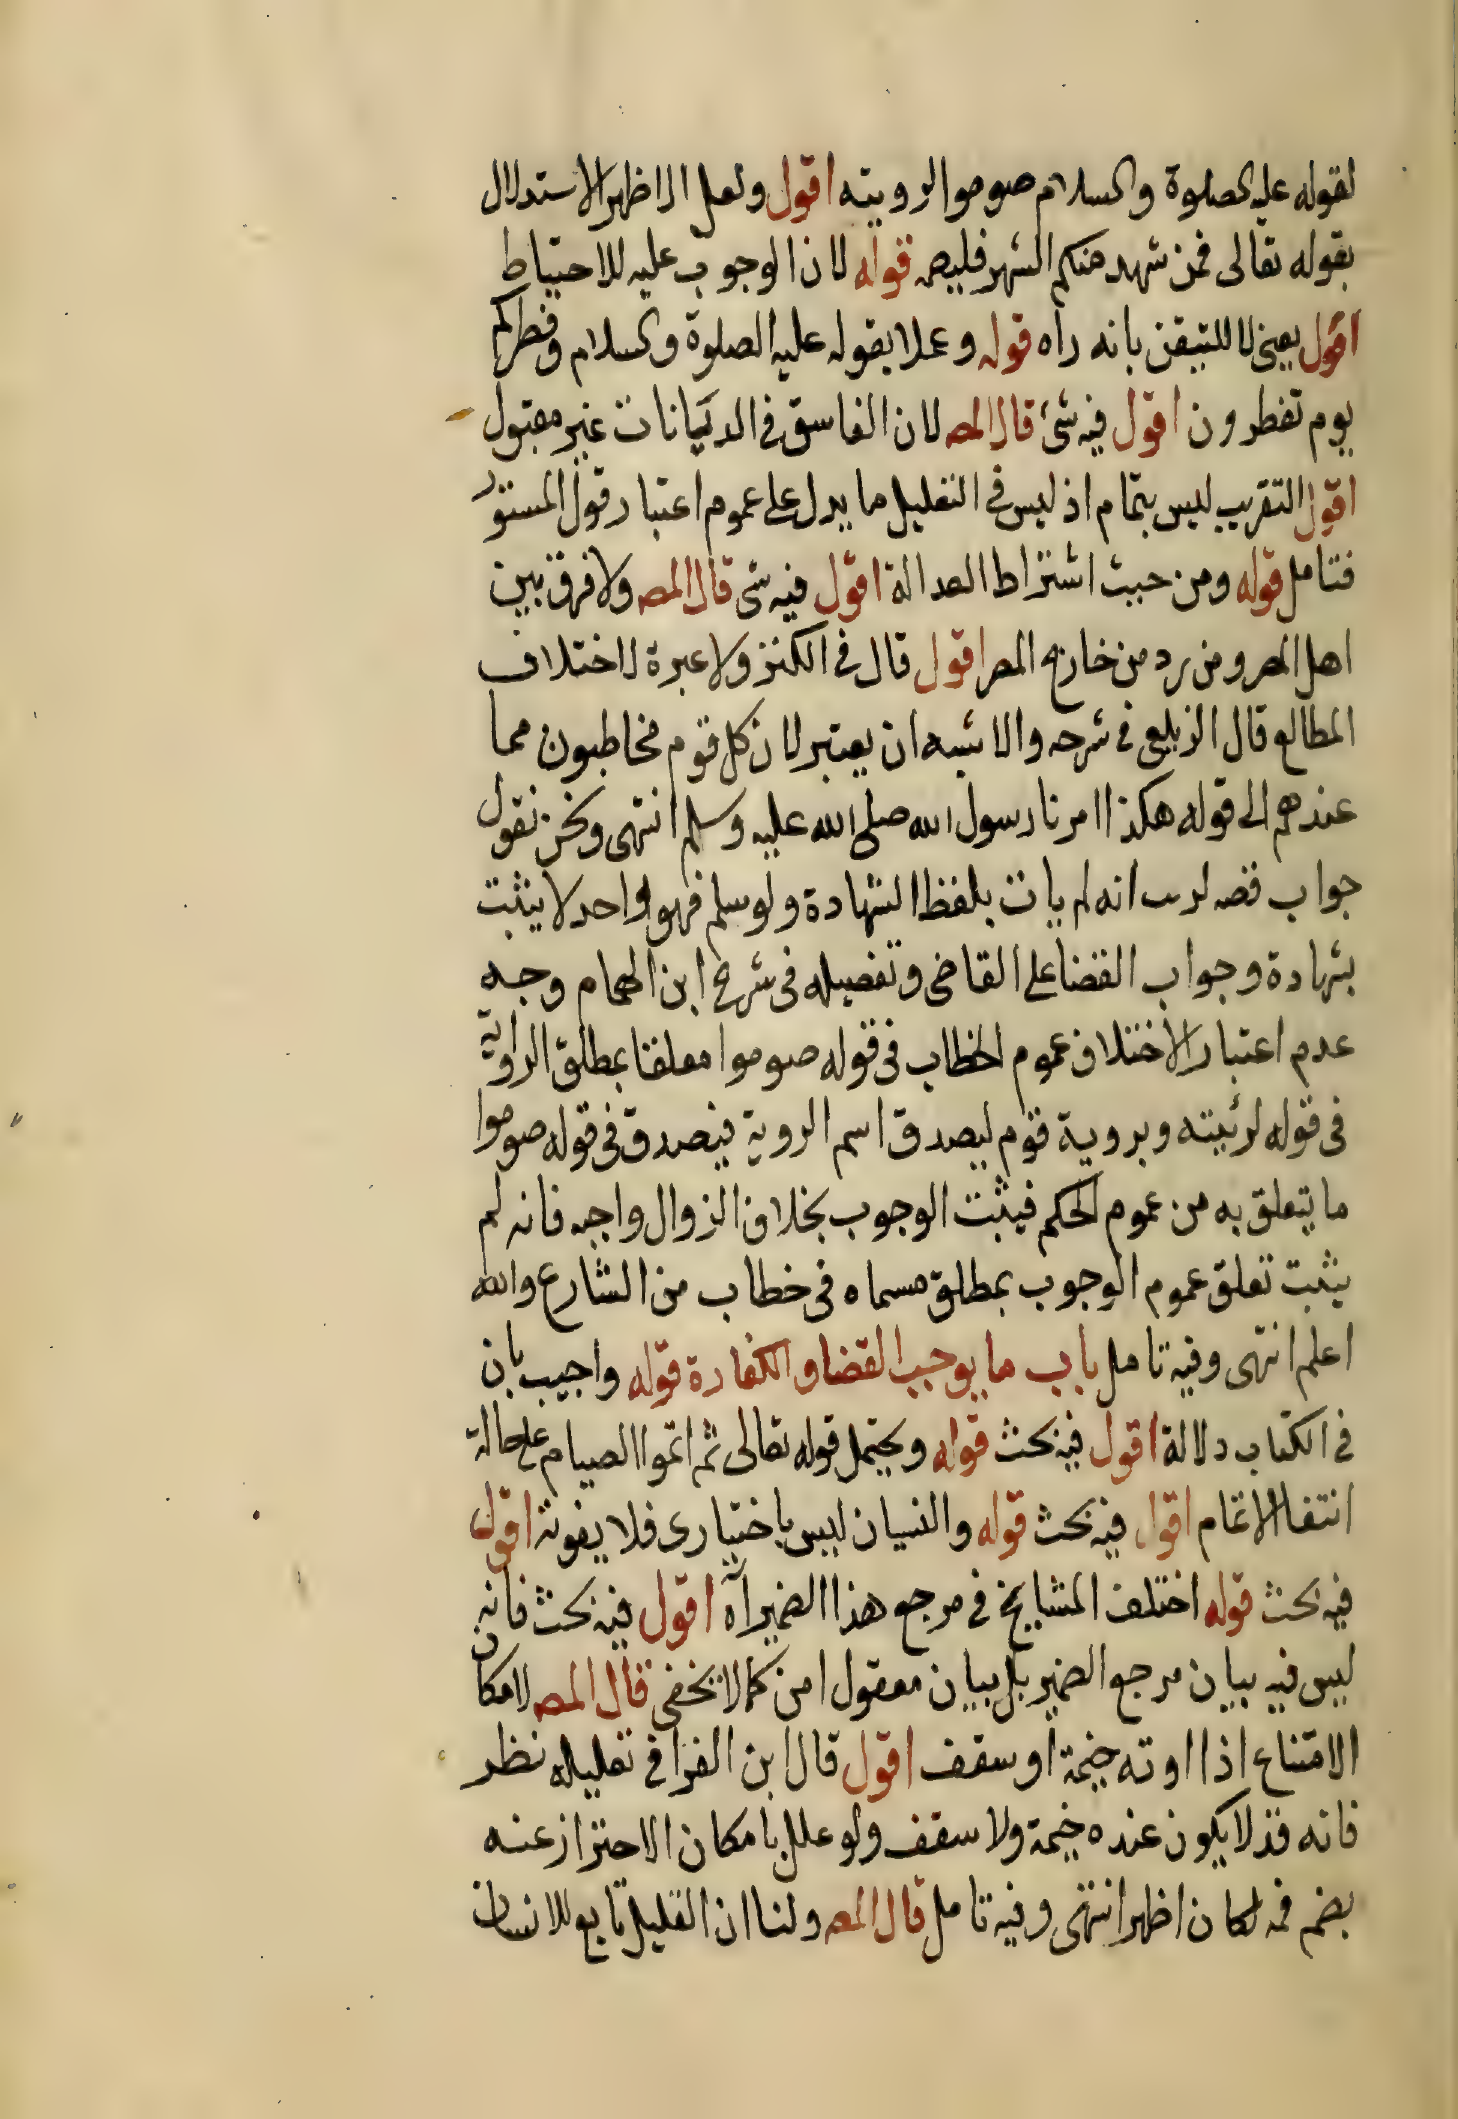 لقوله عليه الصلوة والسلام صوموا لرويته اقول ولعل الاظهر الاستدلال
بقوله تعالى فمن شهد منكم الشهر فليصمه قوله لان الوجوب عليه للاحتياط
اقول يعني لا للتيقن بانه رآه قوله وعملا بقوله عليه الصلوة والسلام وفطركم
يوم تفطرون اقول فيه شئ قال المص لان الفاسق في الديانات غير مقبول
اقول التقريب ليس بتمام اذ ليس في التعليل ما يدل على عموم اعتبار قول المستور
فتامل قوله ومن حيث اشتراط العدالة اقول فيه شئ قال المص ولا فرق بين
اهل المصر ومن يرد من خارج المصر اقول قال في الكنز ولا عبرة لاختلاف
المطالع قال الزيلعي في شرحه والاشبه ان يعتبر لان كل قوم مخاطبون مما
عندهم الى قوله هكذا امرنا رسول الله صلى الله عليه وسلم انتهى ونحن نقول
جواب انه لم يات بلفظ الشهادة ولو سلم فهو واحد لا يثبت
بشهادة وجواب القضا على القاضي وتفصيله في شرح ابن الهمام وجه
عدم اعتبار الاختلاف عموم الخطاب في قوله صوموا معلقا بمطلق الراوية
في قوله لرئيته وبروية قوم ليصدق اسم الروية فيصدق في قوله صوموا
ما يتعلق به من عموم الحكم فيثبت الوجوب بخلاف الزوال واجبه فانه لم
يثبت تعلق عموم الوجوب بمطلق مسماه في خطاب من الشارع والله
اعلم انتهى وفيه تامل باب ما يوجب القضا والكفارة قوله واجيب بان
في الكتاب دلالة اقول فيه بحث قوله ويحتمل قوله تعالى ثم اتموا الصيام على حالة
انتفا الاتمام اقول فيه بحث قوله والنسيان ليس باختياري فلا يفوته اقول
فيه بحث قوله اختلف المشايخ في مرجع هذا الضمير آه اقول فيه بحث فانه
ليس فيه بيان مرجع الضمير بل بيان معقول امن كما لا يخفى قال المص لامكان
الامتناع اذا اوته خيمة او سقف اقول قال ابن الفرا في تعليله نظر
فانه قد لا يكون عنده خيمة ولا سقف ولو علل بامكان الاحتراز عنه
بضم فمه لكان اظهر انتهى وفيه تامل قال المص ولنا ان القليل تابع للانسان